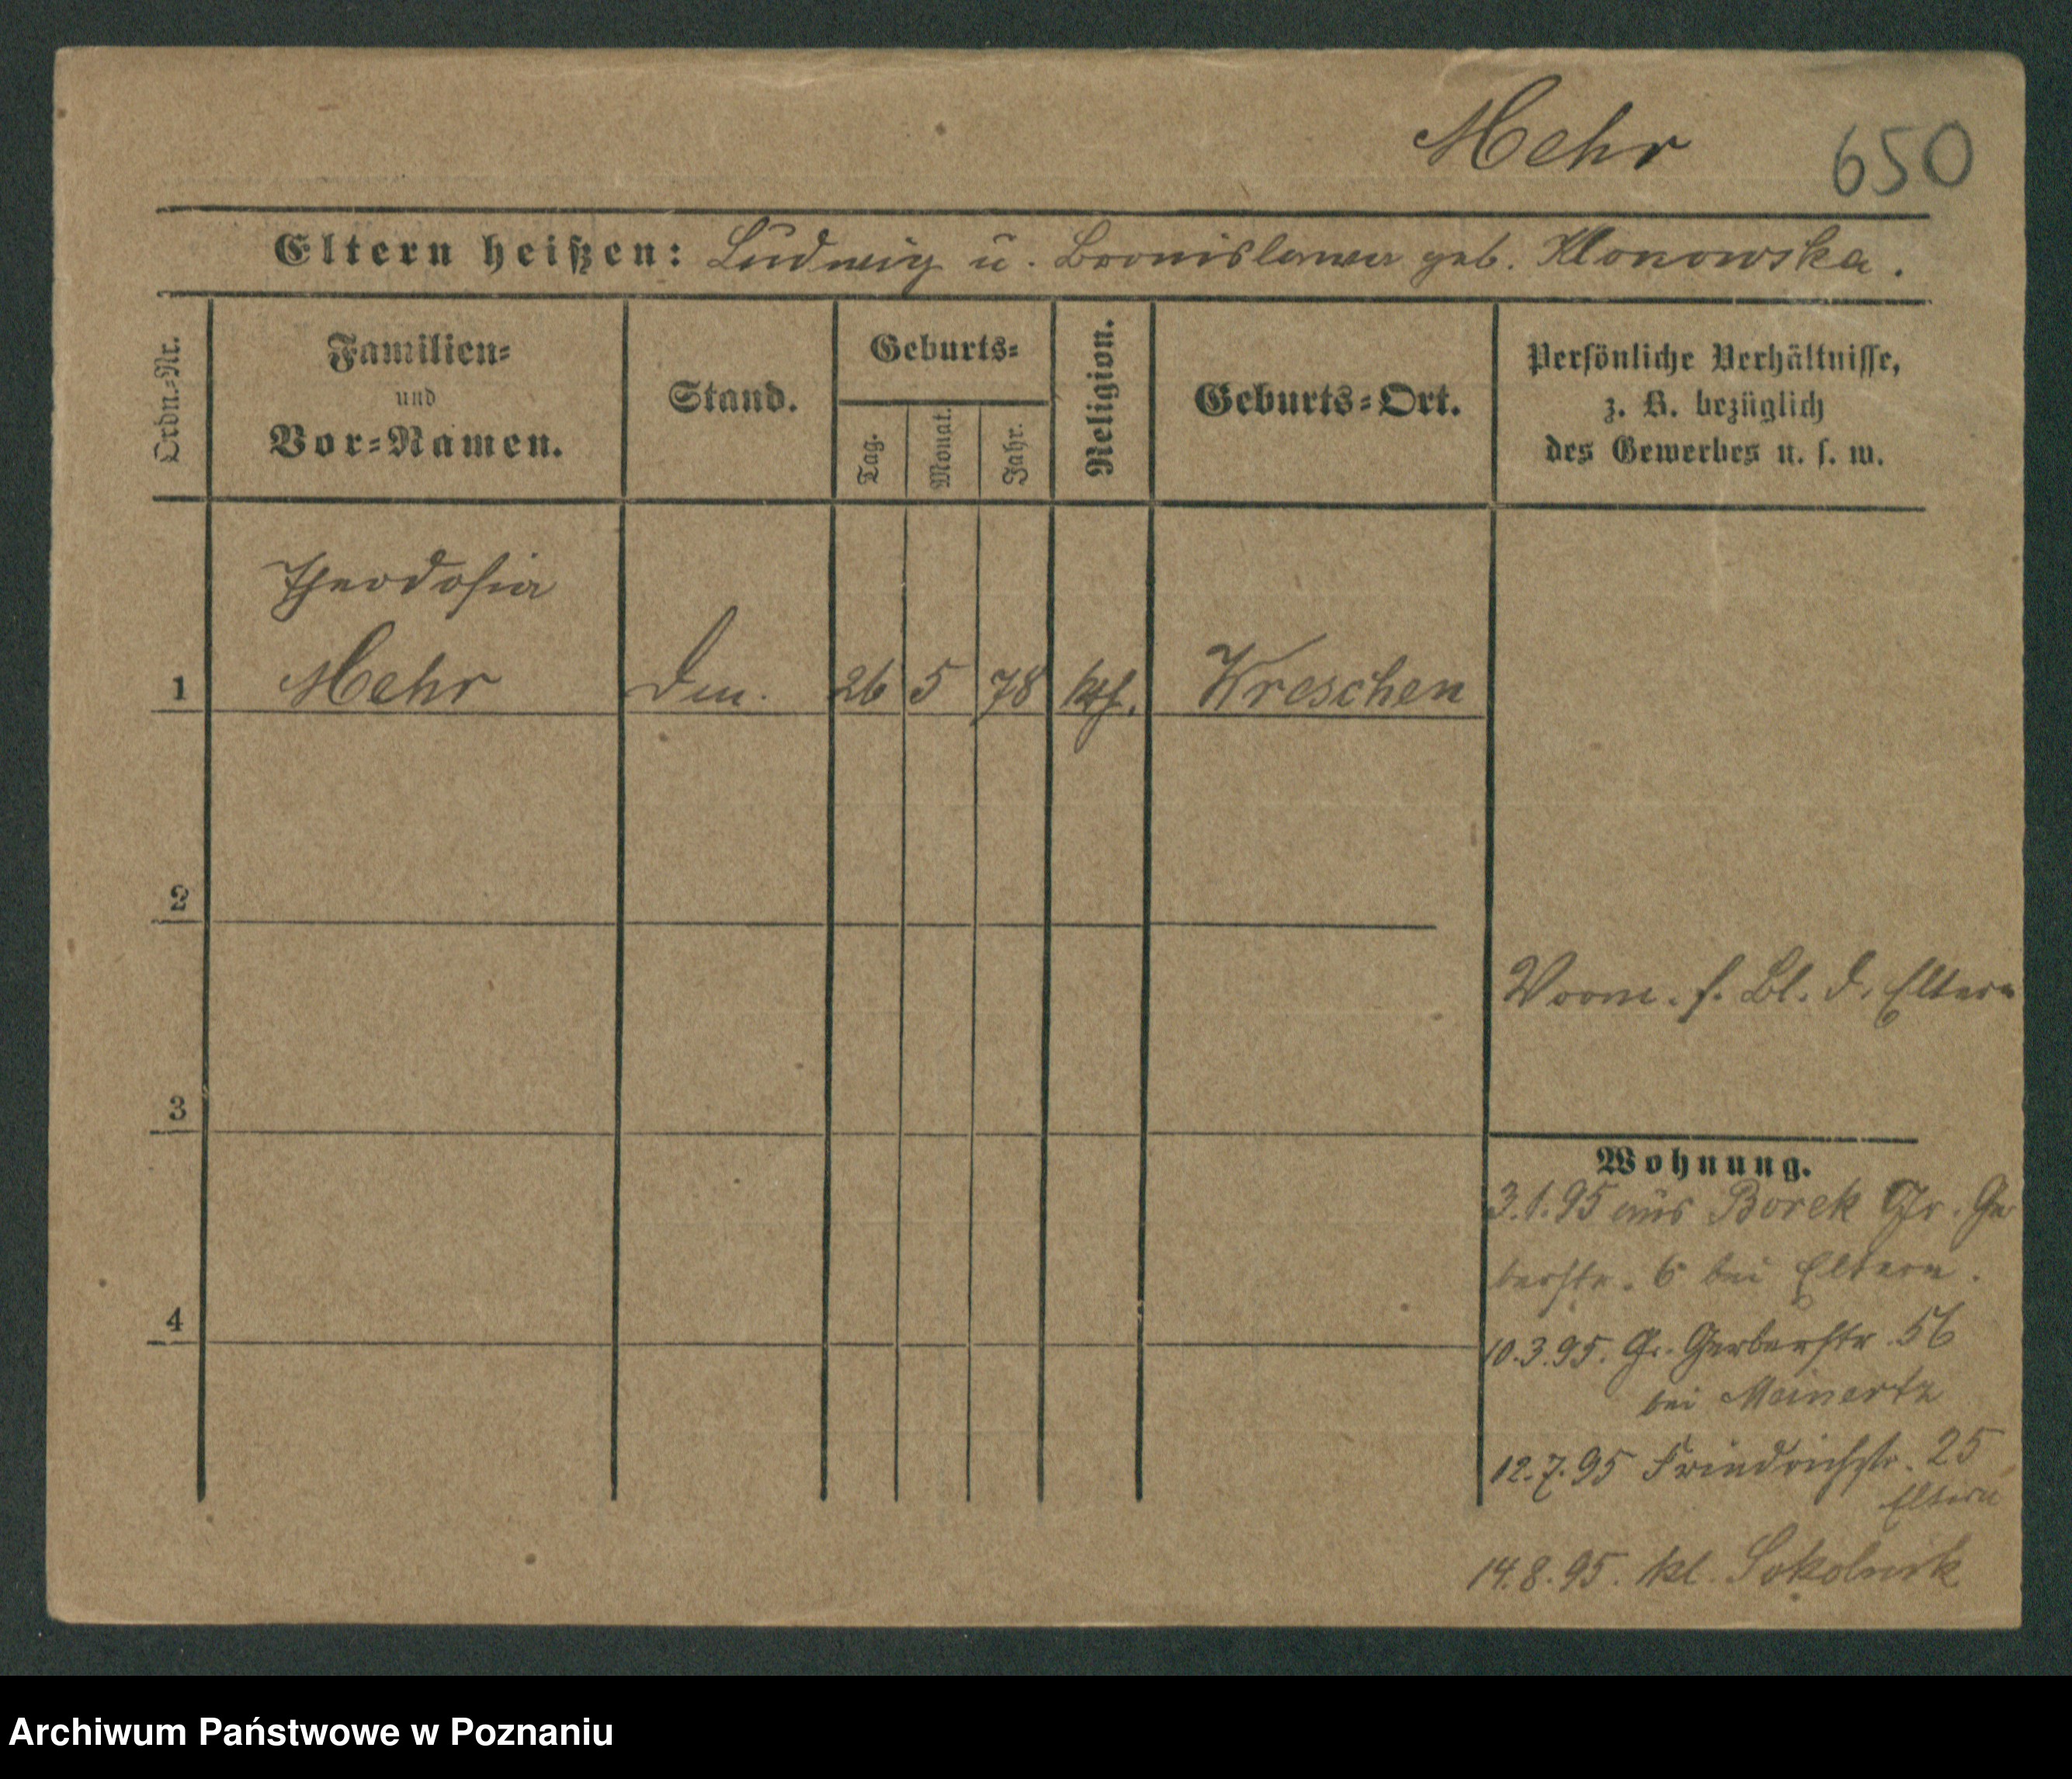 Mehr 650
Eltern heißen: Ludwig u. Bronislawa geb. Klonowska.
Ordn.-Nr.
Familien-
und
Vor-Namen.
Stand.
Geburts-
Tag.
Monat.
Jahr.
Religion.
Geburts-Ort.
Persönliche Verhältnisse,
z. B. bezüglich
des Gewerbes u. s. w.
Theodosia
1 Mehr 26 5 78 kth. Wreschen
2
Vorm. s. Bl. d. Eltern
3
Wohnung.
3.1.95 aus Borek Gr. Ger
berstr. 6 bei Eltern.
4
10.3.95. Gr. Gerberstr. 56
bei Meinertz
12.7.95 Friedrichstr. 25
Eltern
14.8.95. Kl. Sokolnik
Archiwum Państwowe w Poznaniu